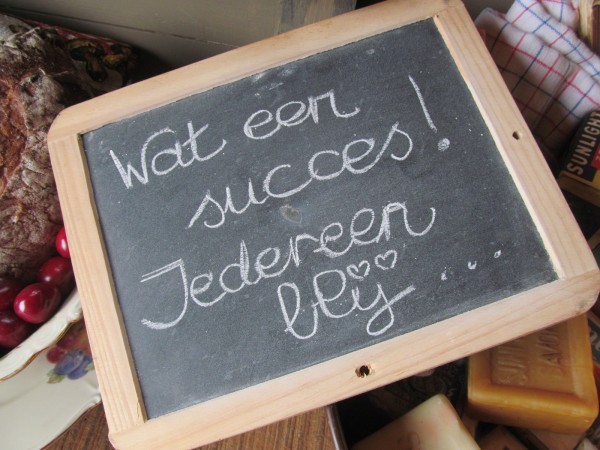 Wat een
succes!
Iedereen
blij ...
SUNLIGHT